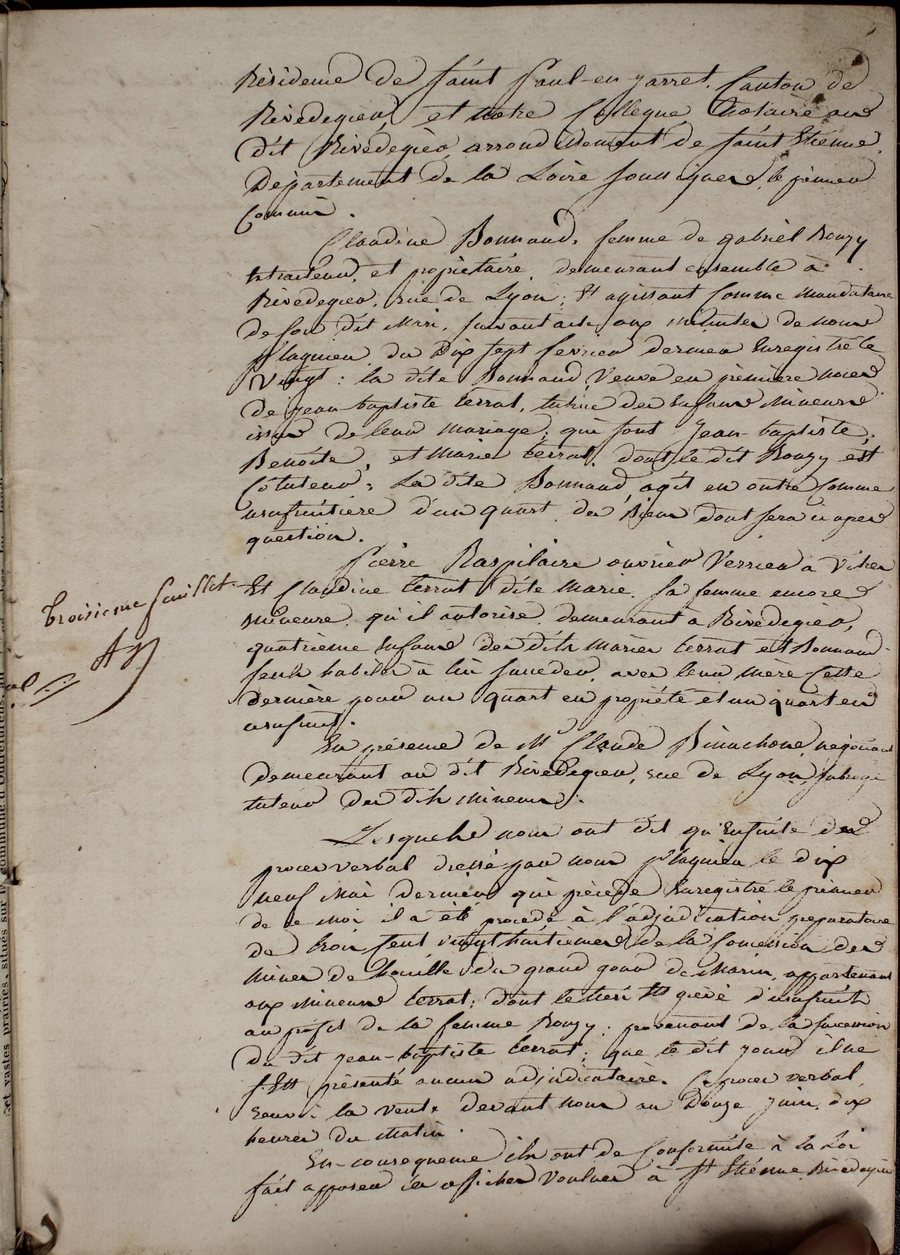 Résidence de Saint Paul-en-Jarret, Canton de
Rivedegier, et notre Collègue Notaire au
dit Rivedegier, arrondissement de Saint Etienne,
Département de la Loire soussignés, le premier
Commis.
Claudine Bonnand, femme de gabriel Bouzy
traiteur, et propriétaire, demeurant ensemble à
Rivedegier, rue de Lyon; Et agissant comme mandataire
de son dit Mari, suivant acte aux minutes de nous
plagnieu du Dix sept fevrier dernier Enregistré le
Vingt; la dite Bonnand, Veuve en première noces
de jean-baptiste terrat, tutrice des Enfans Mineurs
issus de leur mariage, qui sont jean-baptiste,
Benoite, et Marie terrat, dont le dit Bouzy est
Cotuteur; La dite Bonnand agit en outre comme
usufruitière d'un quart des Biens dont sera ci après
question.
Pierre Raspilaire ouvrier Verrier à Vitres
Et Claudine terrat dite Marie, sa femme encore
mineure, qu'il autorise, demeurant à Rivedegier,
quatrieme Enfans des dits Mariés terrat et Bonnand
seuls habiles à lui succeder, avec leur mère Cette
dernière pour un quart en propriété et un quart en
usufruit.
En présence de Mr Claude Pinachone, négociant
demeurant au dit Rivedegier, rue de Lyon, subrogé
tuteur des dits mineurs.
Lesquels nous ont dit qu'Ensuite des
procès verbal dressé par nous plagnieu le dix
neuf Mai dernier qui précède Enregistré le premier
de ce Moi, il a été procédé à l'adjudication préparatoire
de trois cent vingt huitiemes de la Concession des
Mines de houille du grand gour de Marin, appartenant
aux mineurs terrat; dont le tiers est grévé d'usufruit
au profit de la femme Bouzy; provenant de la succession
du dit jean-baptiste terrat; que le dit jour il ne
s'est présenté aucun adjudicataire. Ce procès verbal
renvoi la vente devant nous au Douze juin, dix
heures du Matin.
En conséquence ils ont de Conformité à la Loi
fait apposer les affiches voulues à St Etienne, Rivedegier
troisieme feuillet
et vastes prairies, situés sur la commune d'Outrefurens